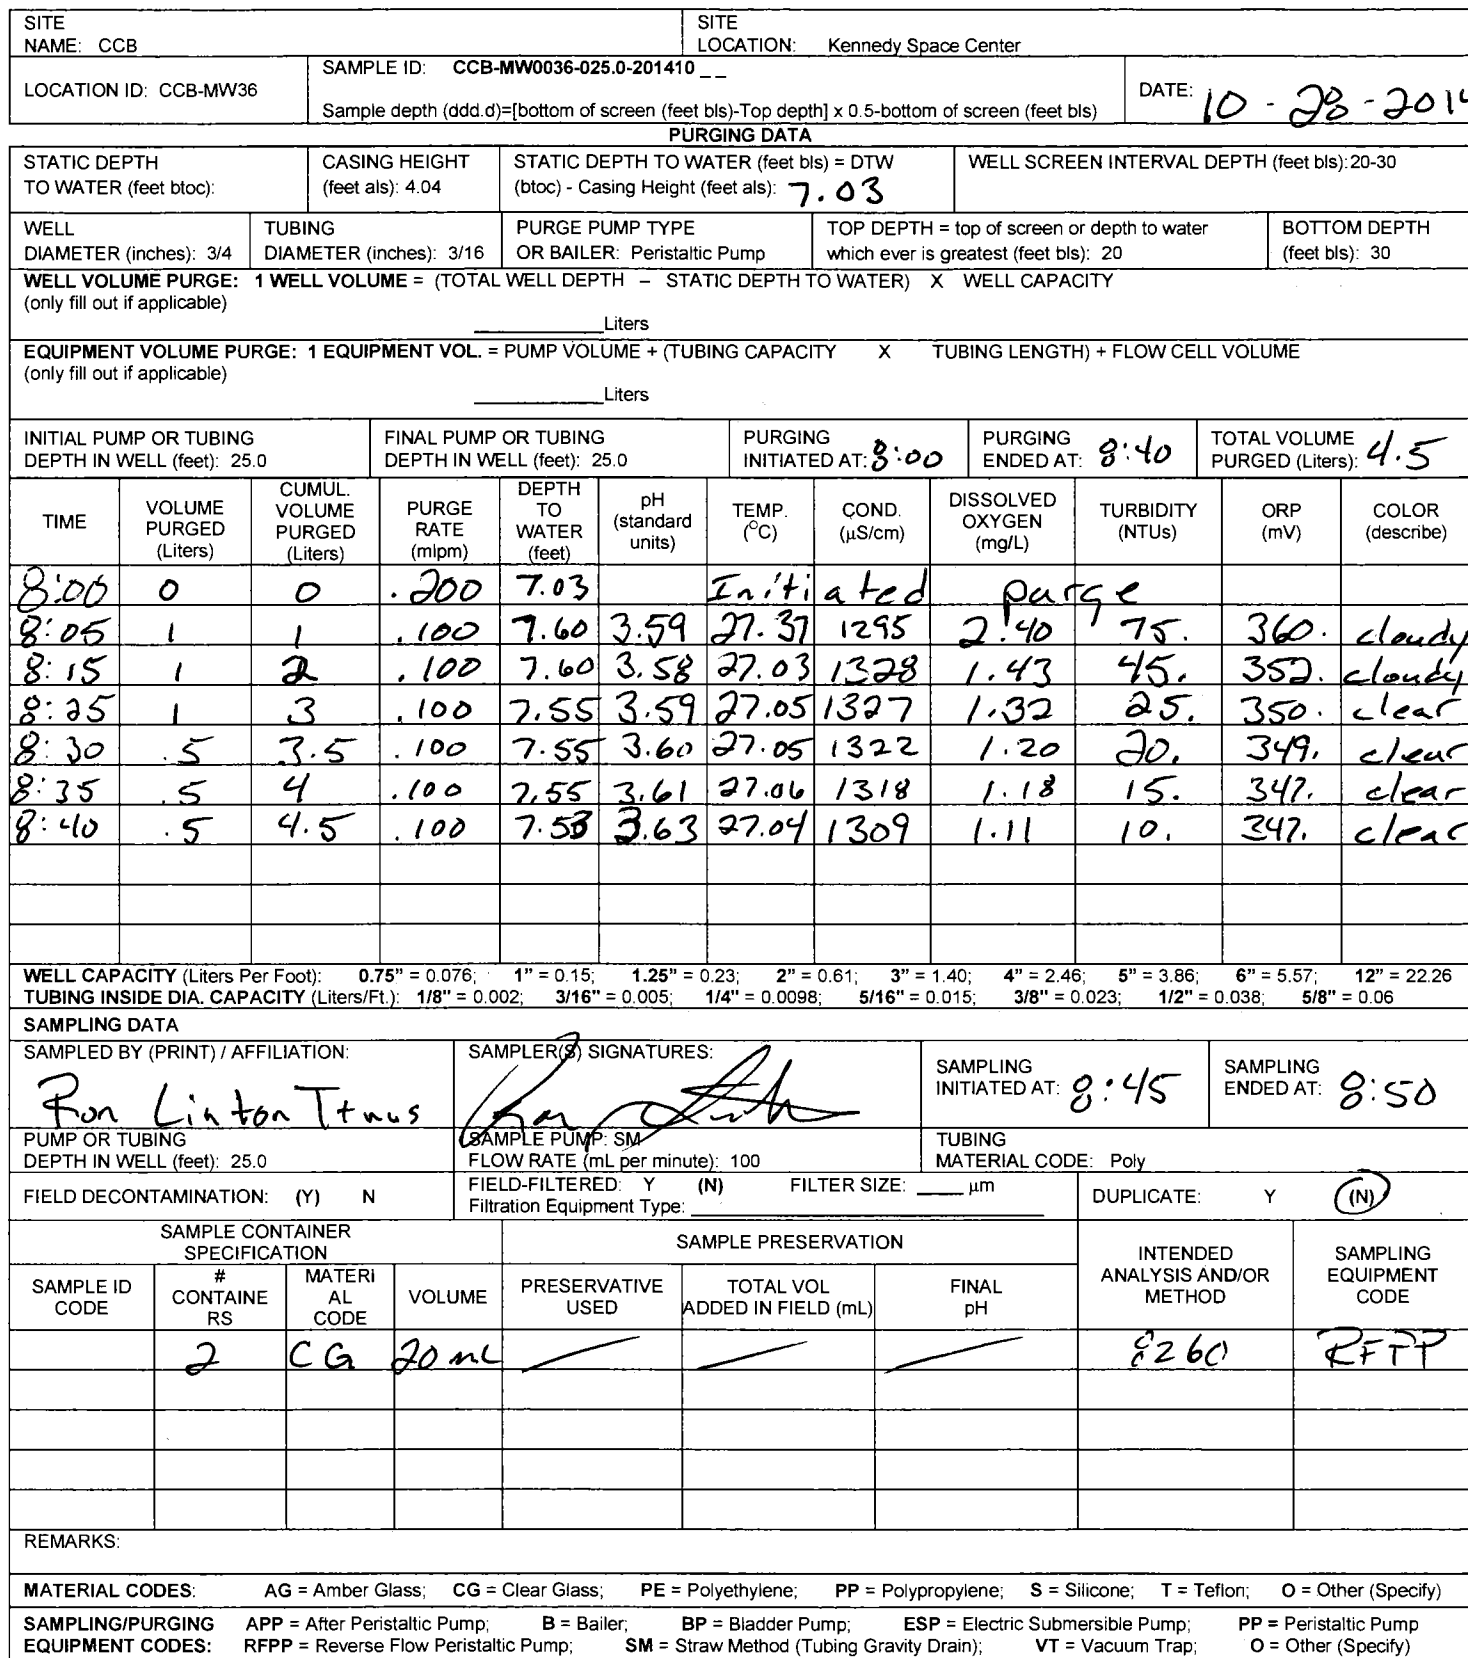 SITE
NAME: CCB
SITE
LOCATION: Kennedy Space Center
LOCATION ID: CCB-MW36
SAMPLE ID: CCB-MW0036-025.0-201410 _ _
Sample depth (ddd.d)=[bottom of screen (feet bls)-Top depth] x 0.5-bottom of screen (feet bls)
DATE: 10-28-2014
PURGING DATA
STATIC DEPTH
TO WATER (feet btoc):
CASING HEIGHT
(feet als): 4.04
STATIC DEPTH TO WATER (feet bls) = DTW
(btoc) - Casing Height (feet als): 7.03
WELL SCREEN INTERVAL DEPTH (feet bls):20-30
WELL
DIAMETER (inches): 3/4
TUBING
DIAMETER (inches): 3/16
PURGE PUMP TYPE
OR BAILER: Peristaltic Pump
TOP DEPTH = top of screen or depth to water
which ever is greatest (feet bls): 20
BOTTOM DEPTH
(feet bls): 30
WELL VOLUME PURGE: 1 WELL VOLUME = (TOTAL WELL DEPTH – STATIC DEPTH TO WATER) X WELL CAPACITY
(only fill out if applicable)
________Liters
EQUIPMENT VOLUME PURGE: 1 EQUIPMENT VOL. = PUMP VOLUME + (TUBING CAPACITY X TUBING LENGTH) + FLOW CELL VOLUME
(only fill out if applicable)
________Liters
INITIAL PUMP OR TUBING
DEPTH IN WELL (feet): 25.0
FINAL PUMP OR TUBING
DEPTH IN WELL (feet): 25.0
PURGING
INITIATED AT: 8:00
PURGING
ENDED AT: 8:40
TOTAL VOLUME
PURGED (Liters): 4.5
TIME
VOLUME
PURGED
(Liters)
CUMUL.
VOLUME
PURGED
(Liters)
PURGE
RATE
(mlpm)
DEPTH
TO
WATER
(feet)
pH
(standard
units)
TEMP.
(°C)
COND.
(µS/cm)
DISSOLVED
OXYGEN
(mg/L)
TURBIDITY
(NTUs)
ORP
(mV)
COLOR
(describe)
8:00 0 0 .200 7.03 Initiated purge
8:05 1 1 .100 7.60 3.59 27.37 1295 2.40 75. 360. cloudy
8:15 1 2 .100 7.60 3.58 27.03 1328 1.43 45. 352. cloudy
8:25 1 3 .100 7.55 3.59 27.05 1327 1.32 25. 350. clear
8:30 .5 3.5 .100 7.55 3.60 27.05 1322 1.20 20. 349. clear
8:35 .5 4 .100 7.55 3.61 27.06 1318 1.18 15. 347. clear
8:40 .5 4.5 .100 7.53 3.63 27.04 1309 1.11 10. 347. clear
WELL CAPACITY (Liters Per Foot): 0.75" = 0.076; 1" = 0.15; 1.25" = 0.23; 2" = 0.61; 3" = 1.40; 4" = 2.46; 5" = 3.86; 6" = 5.57; 12" = 22.26
TUBING INSIDE DIA. CAPACITY (Liters/Ft.): 1/8" = 0.002; 3/16" = 0.005; 1/4" = 0.0098; 5/16" = 0.015; 3/8" = 0.023; 1/2" = 0.038; 5/8" = 0.06
SAMPLING DATA
SAMPLED BY (PRINT) / AFFILIATION:
Ron Linton Ttnus
SAMPLER(S) SIGNATURES:
SAMPLING
INITIATED AT: 8:45
SAMPLING
ENDED AT: 8:50
PUMP OR TUBING
DEPTH IN WELL (feet): 25.0
SAMPLE PUMP: SM
FLOW RATE (mL per minute): 100
TUBING
MATERIAL CODE: Poly
FIELD DECONTAMINATION: (Y) N
FIELD-FILTERED: Y (N) FILTER SIZE: ____ µm
Filtration Equipment Type:
DUPLICATE: Y (N)
SAMPLE CONTAINER
SPECIFICATION
SAMPLE PRESERVATION
INTENDED
ANALYSIS AND/OR
METHOD
SAMPLING
EQUIPMENT
CODE
SAMPLE ID
CODE
#
CONTAINE
RS
MATERI
AL
CODE
VOLUME
PRESERVATIVE
USED
TOTAL VOL
ADDED IN FIELD (mL)
FINAL
pH
2 CG 20 mL 8260 RFPP
REMARKS:
MATERIAL CODES: AG = Amber Glass; CG = Clear Glass; PE = Polyethylene; PP = Polypropylene; S = Silicone; T = Teflon; O = Other (Specify)
SAMPLING/PURGING APP = After Peristaltic Pump; B = Bailer; BP = Bladder Pump; ESP = Electric Submersible Pump; PP = Peristaltic Pump
EQUIPMENT CODES: RFPP = Reverse Flow Peristaltic Pump; SM = Straw Method (Tubing Gravity Drain); VT = Vacuum Trap; O = Other (Specify)